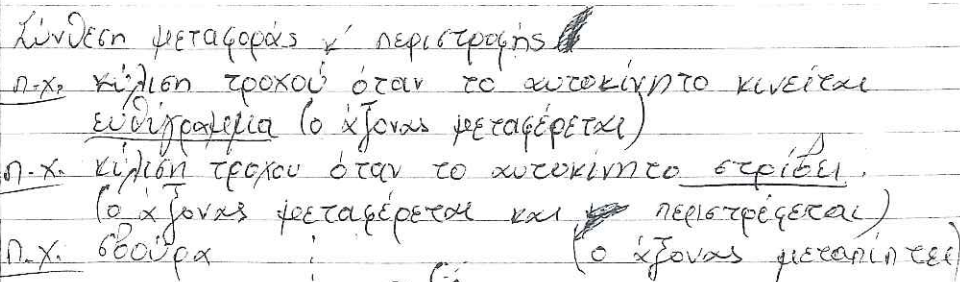 Σύνθεση μεταφοράς κ' περιστροφής
π.χ. κύλιση τροχού όταν το αυτοκίνητο κινείται
ευθύγραμμα (ο άξονας μεταφέρεται)
π.χ. κύλιση τροχού όταν το αυτοκίνητο στρίβει.
(ο άξονας μεταφέρεται και περιστρέφεται)
π.χ. σβούρα (ο άξονας μεταπίπτει)